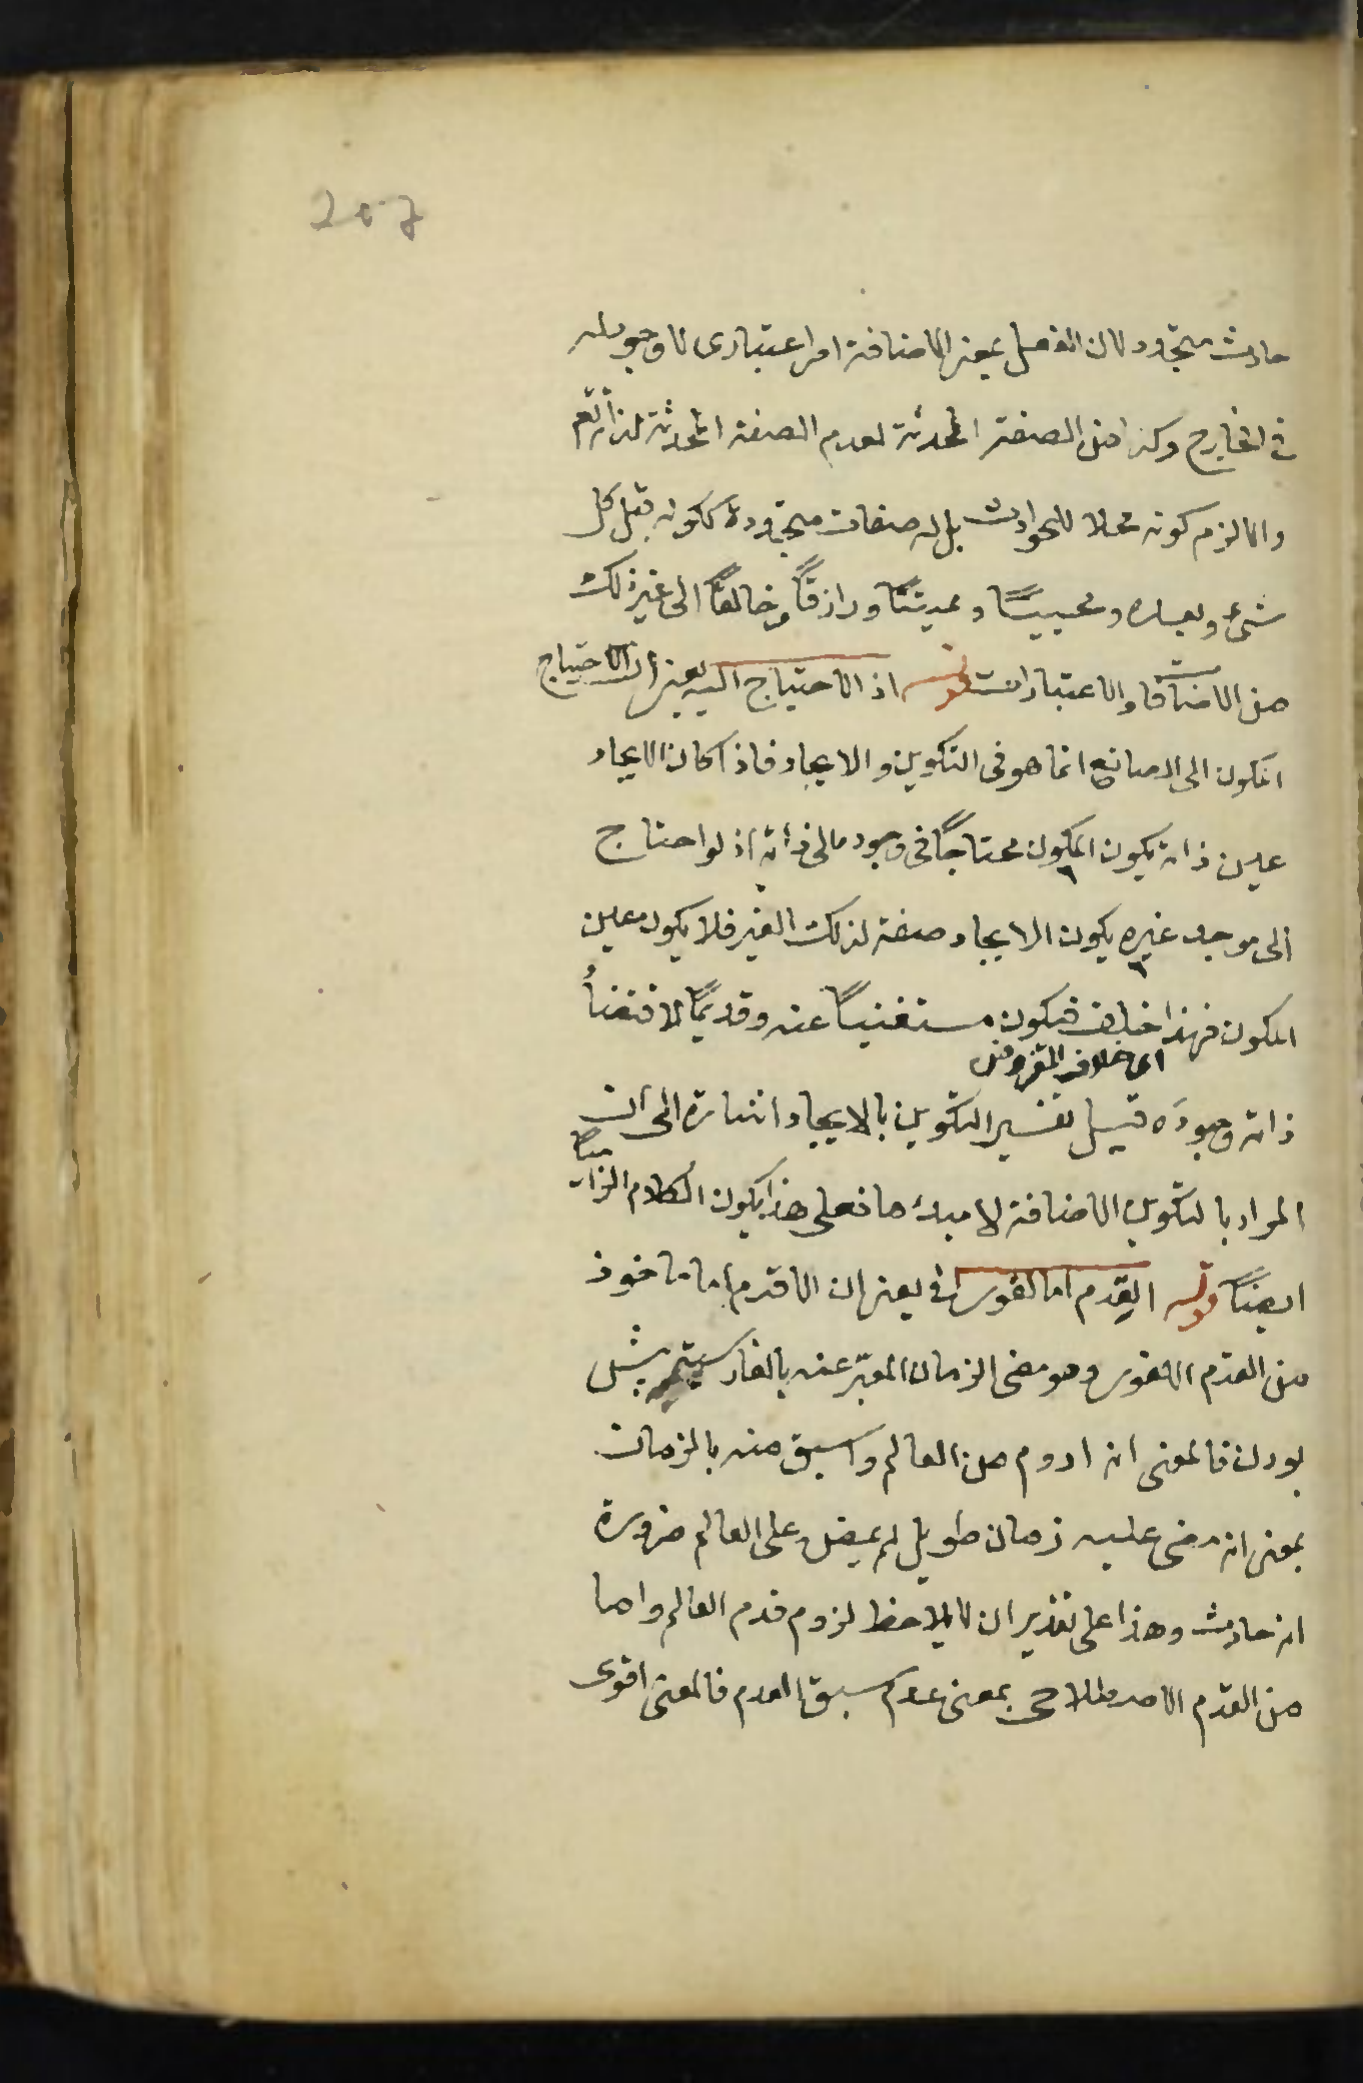 207
حادث متجدد لان الفعل بمعنى الاضافة امر اعتبارى لا وجود له
فى الخارج وكذا من الصفة المحدثة لعدم الصفة المحدثة لذاته تع
والا لزم كونه محلا للحوادث بل له صفات متجددة ككونه قبل كل
شئ وبعده ومحيياً ومميتاً ورازقاً وخالقاً الى غير ذلك
من الاضافات والاعتبارات قوله اذ الاحتياج اليه يعنى ان الاحتياج
المكون الى الصانع انما هو فى التكوين والايجاد فاذا كان الايجاد
عين ذاته يكون المكون محتاجاً فى وجوده الى ذاته اذ لو احتاج
الى موجد غيره يكون الايجاد صفة لذلك الغير فلا يكون عين
المكون فهذا خلف فيكون مستغنياً عنه وقديماً لاقتضأ
اى خلاف المفروض
ذاته وجودَه قيل تفسير التكوين بالايجاد اشارة الى ان
المراد بالتكوين الاضافة لا مبدأها فعلى هذا يكون الكلام الزامياً
ايضاً قوله القدم اما لغوى الخ يعنى ان الاقدم اما ماخوذ
من القدم اللغوى وهو مضى الزمان المعبّر عنه بالفارسية پيش
بودن فالمعنى انه ادوم من العالم واسبق منه بالزمان
بمعنى انه مضى عليه زمان طويل لم يمض على العالم ضرورة
انه حادث وهذا على تقدير ان لا يلاحظ لزوم قدم العالم واما
من القدم الاصطلاحى بمعنى عدم سبق العدم فالمعنى اقوى